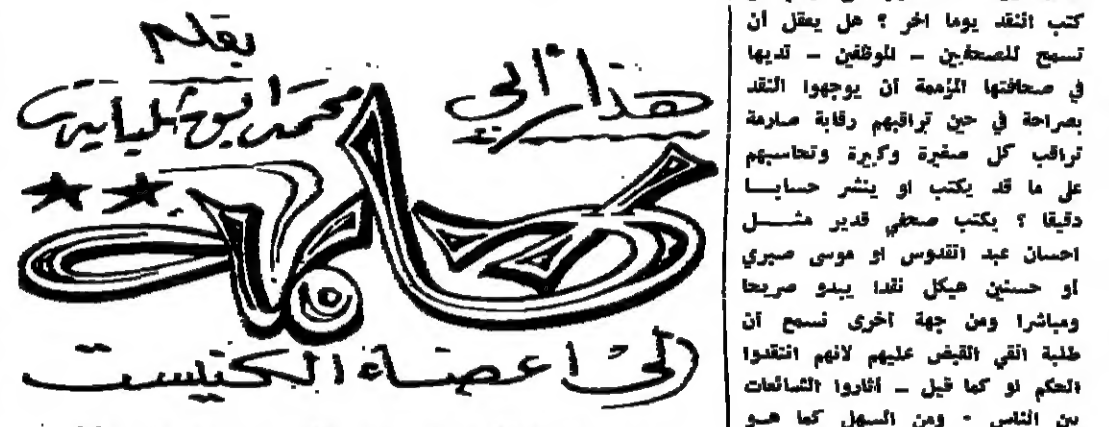 هذا رأيي
بقلم
محمد ابو شلباية
إلى اعضاء الكنيست
كتب النقد يوما اخر ؟ هل يعقل ان
تسمح للصحفيين ـ الموظفين ـ لديها
في صحافتها المؤممة ان يوجهوا النقد
بصراحة في حين تراقبهم رقابة صارمة
تراقب كل صغيرة وكبيرة وتحاسبهم
على ما قد يكتب او ينشر حسابــا
دقيقا ؟ يكتب صحفي قدير مثــل
احسان عبد القدوس او موسى صبري
او حسنين هيكل نقدا يبدو صريحا
ومباشرا ومن جهة اخرى نسمع ان
طلبة القي القبض عليهم لانهم انتقدوا
الحكم او كما قيل ـ أثاروا الشائعات
بين الناس ٠ ومن السهل كما هــو